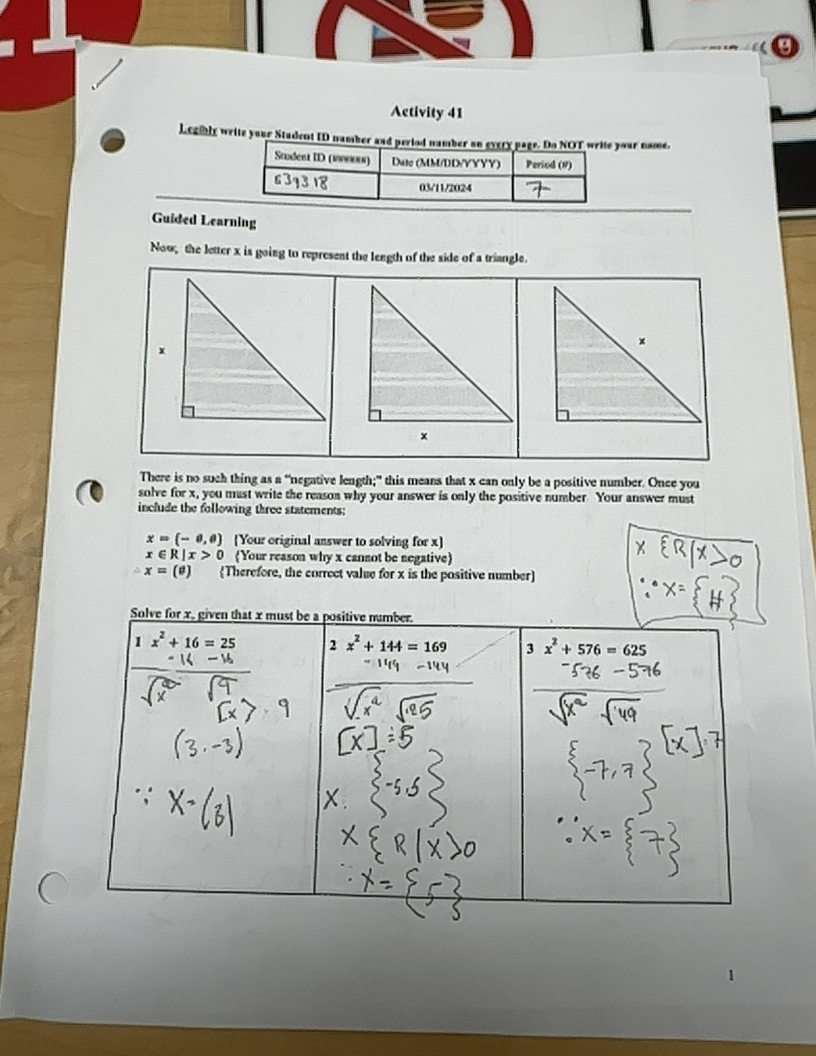 Activity 41
Legibly write your Student ID number and period number on every page. Do NOT write your name.
Student ID (######) Date (MM/DD/YYYY) Period (#)
639318 03/11/2024 7
Guided Learning
Now, the letter x is going to represent the length of the side of a triangle.
x
x
x
There is no such thing as a “negative length;” this means that x can only be a positive number. Once you
solve for x, you must write the reason why your answer is only the positive number. Your answer must
include the following three statements:
x = {- #, #} {Your original answer to solving for x}
x ∈ R | x > 0 {Your reason why x cannot be negative}
∴ x = {#} {Therefore, the correct value for x is the positive number}
x { R | x > 0
∵ x = { # }
Solve for x, given that x must be a positive number.
1 x² + 16 = 25
- 16 - 16
√x² √9
[x] > 9
(3, -3)
∵ x = (3)
2 x² + 144 = 169
- 144 - 144
√x² √25
[x] = 5
x. {-5,5}
x { R | x > 0
∵ x = {5}
3 x² + 576 = 625
-576 -576
√x² √49
[x] . 7
{-7, 7}
∵ x = {7}
1